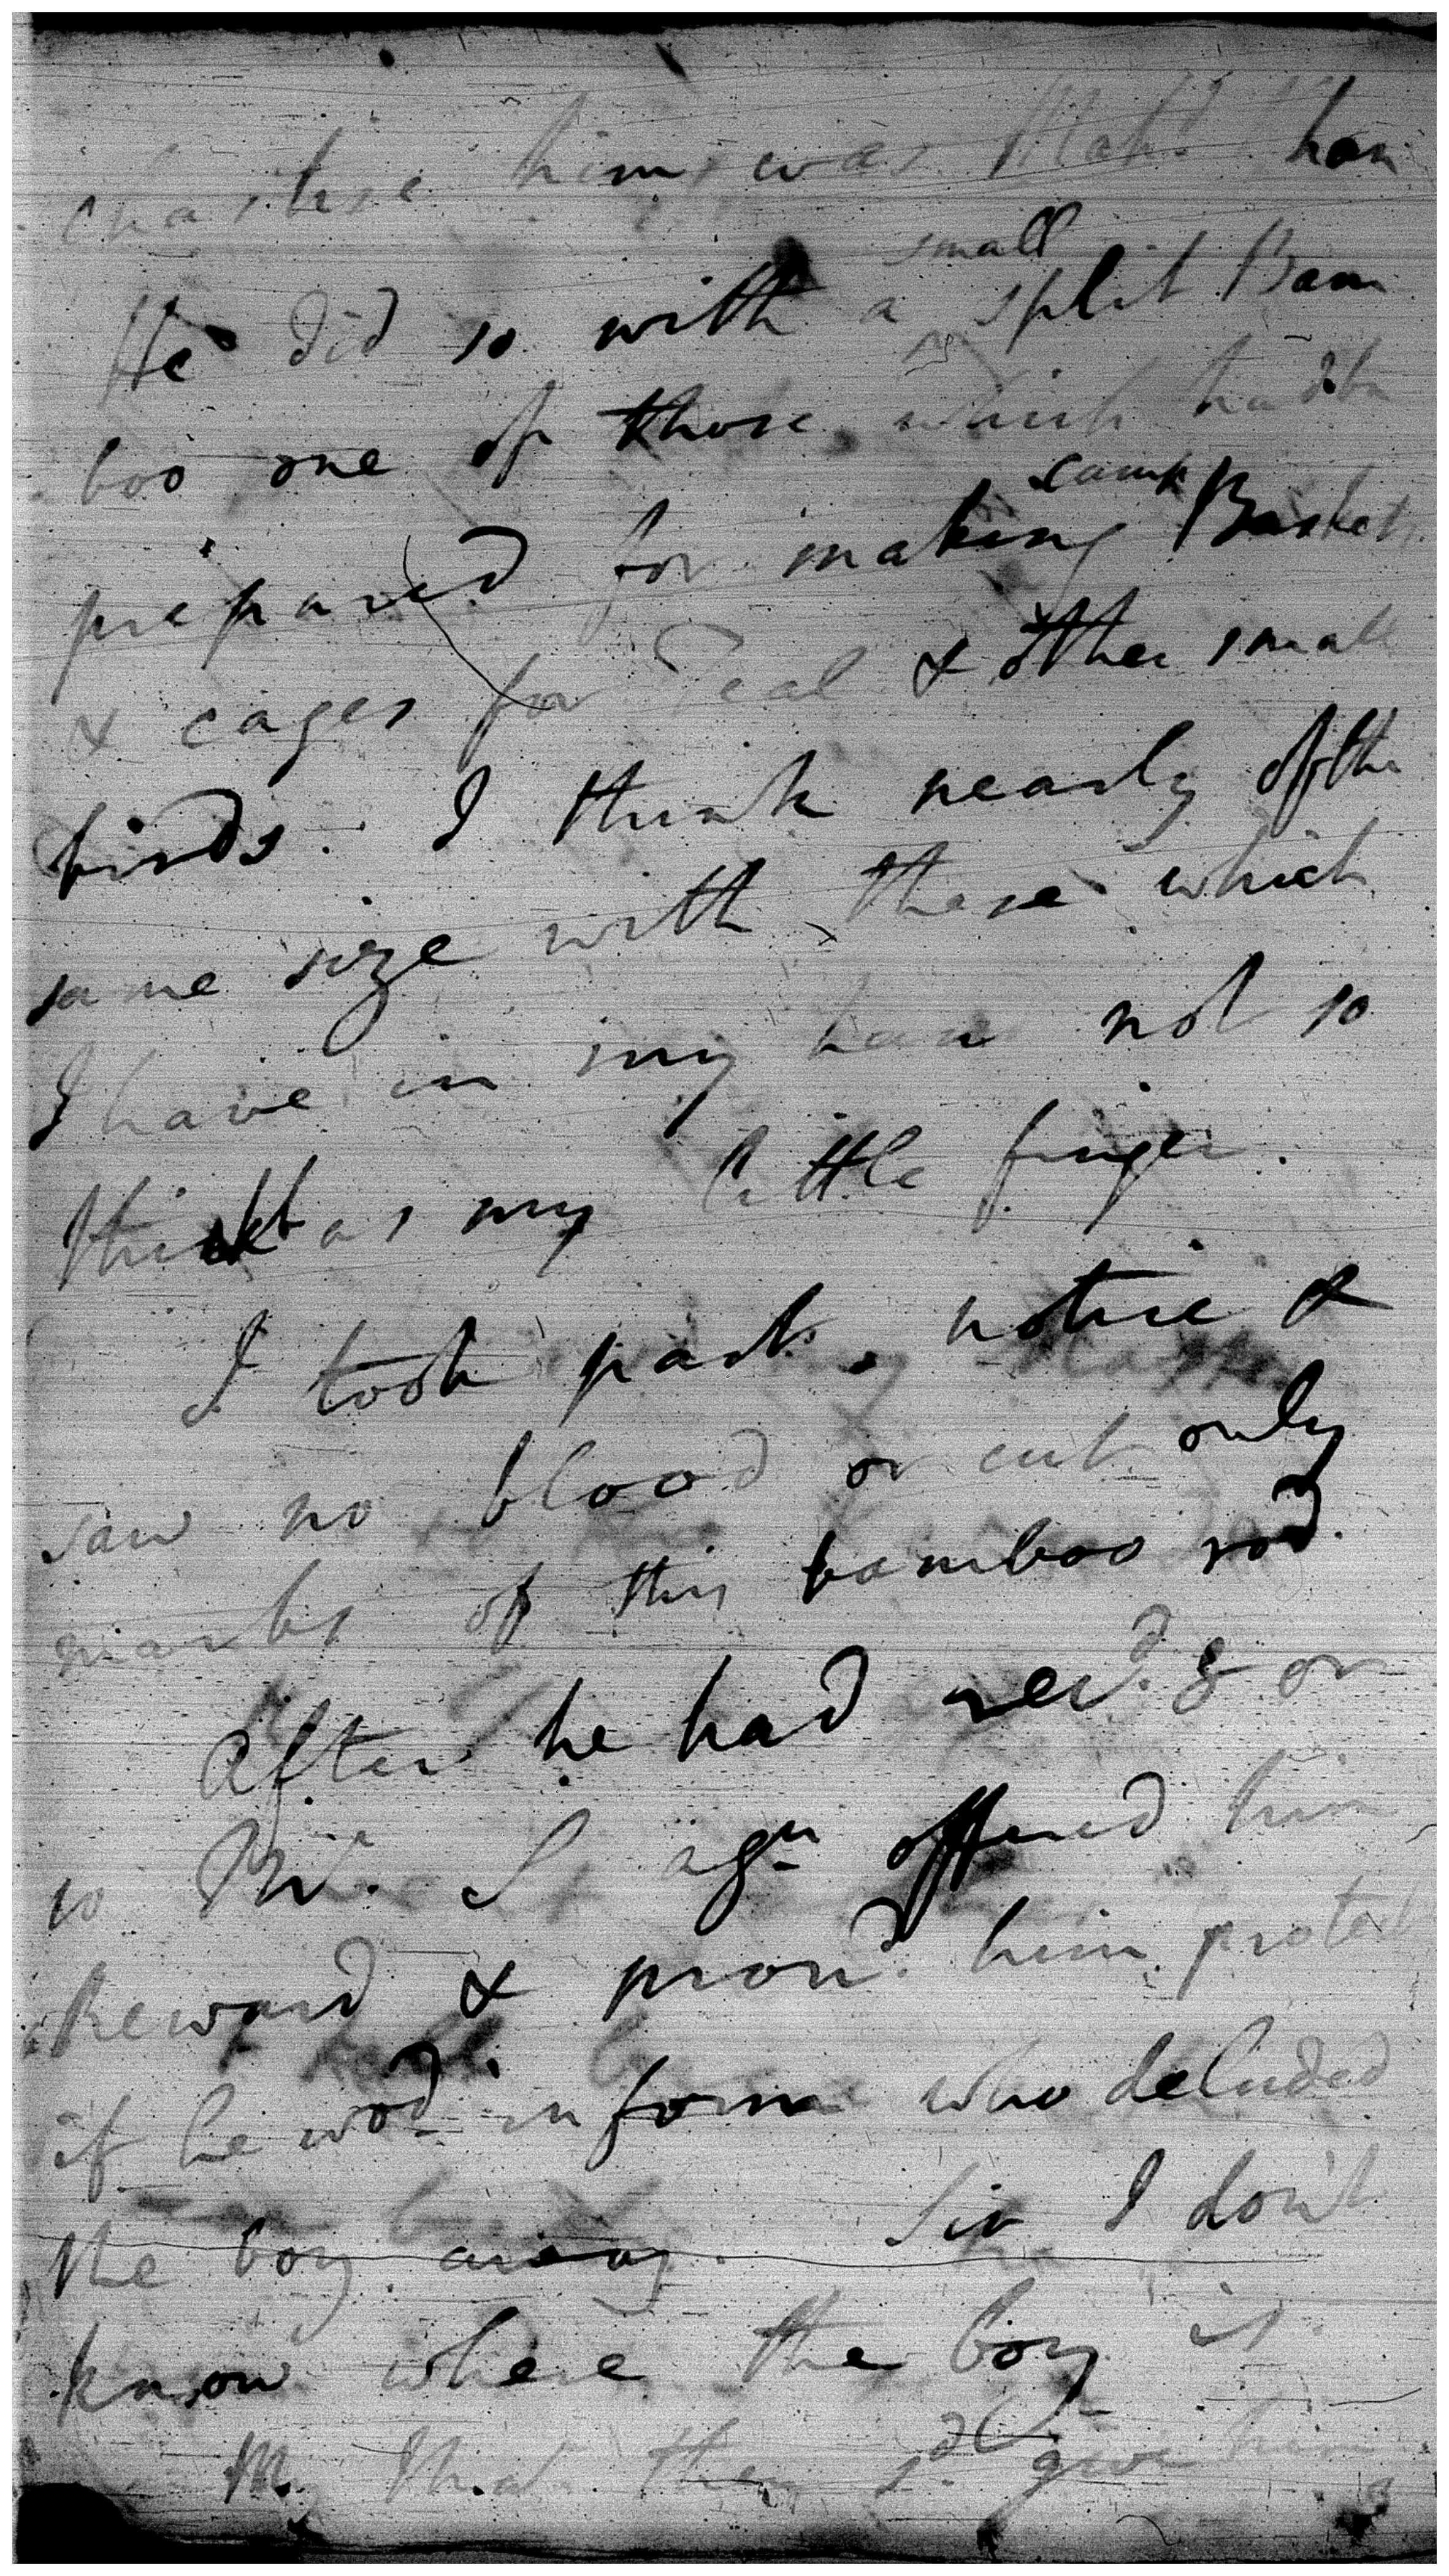 chastise him, was Mahd. han
small
He did so with a split Bam
boo one of those which had bn
camp
prepared for making Baskets
& cages for Teal & other small
birds. I think nearly of the
same size with these which
I have in my han not so
thick as my little finger.
I took part. notice &
saw no blood or cut only
marks of this bamboo rod
After he had recd. 8 or
10 Mr. S agn offered him
Reward & promd. him protect
if he wod. inform who deluded
the boy away. Sir I don't
know where the boy is
Mr. then sd. give him